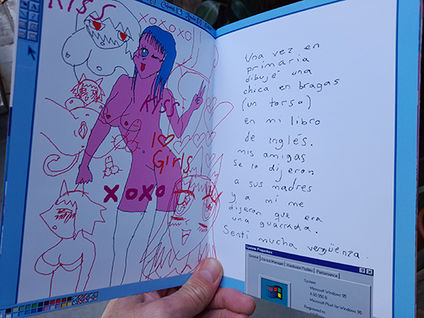 KISS
XOXOXO
Kiss
I ♡
Girls
XOXO
Una vez en
primaria
dibujé una
chica en bragas
(un torso)
en mi libro
de inglés.
mis amigas
se lo dijeron
a sus madres
y a mi me
dijeron que era
una guarrada.
Sentí mucha vergüenza.
System Properties
General
Device Manager
Hardware Profiles
Performance
System:
Microsoft Windows 95
4.00.950 B
Microsoft Plus! for Windows 95
Registered to: